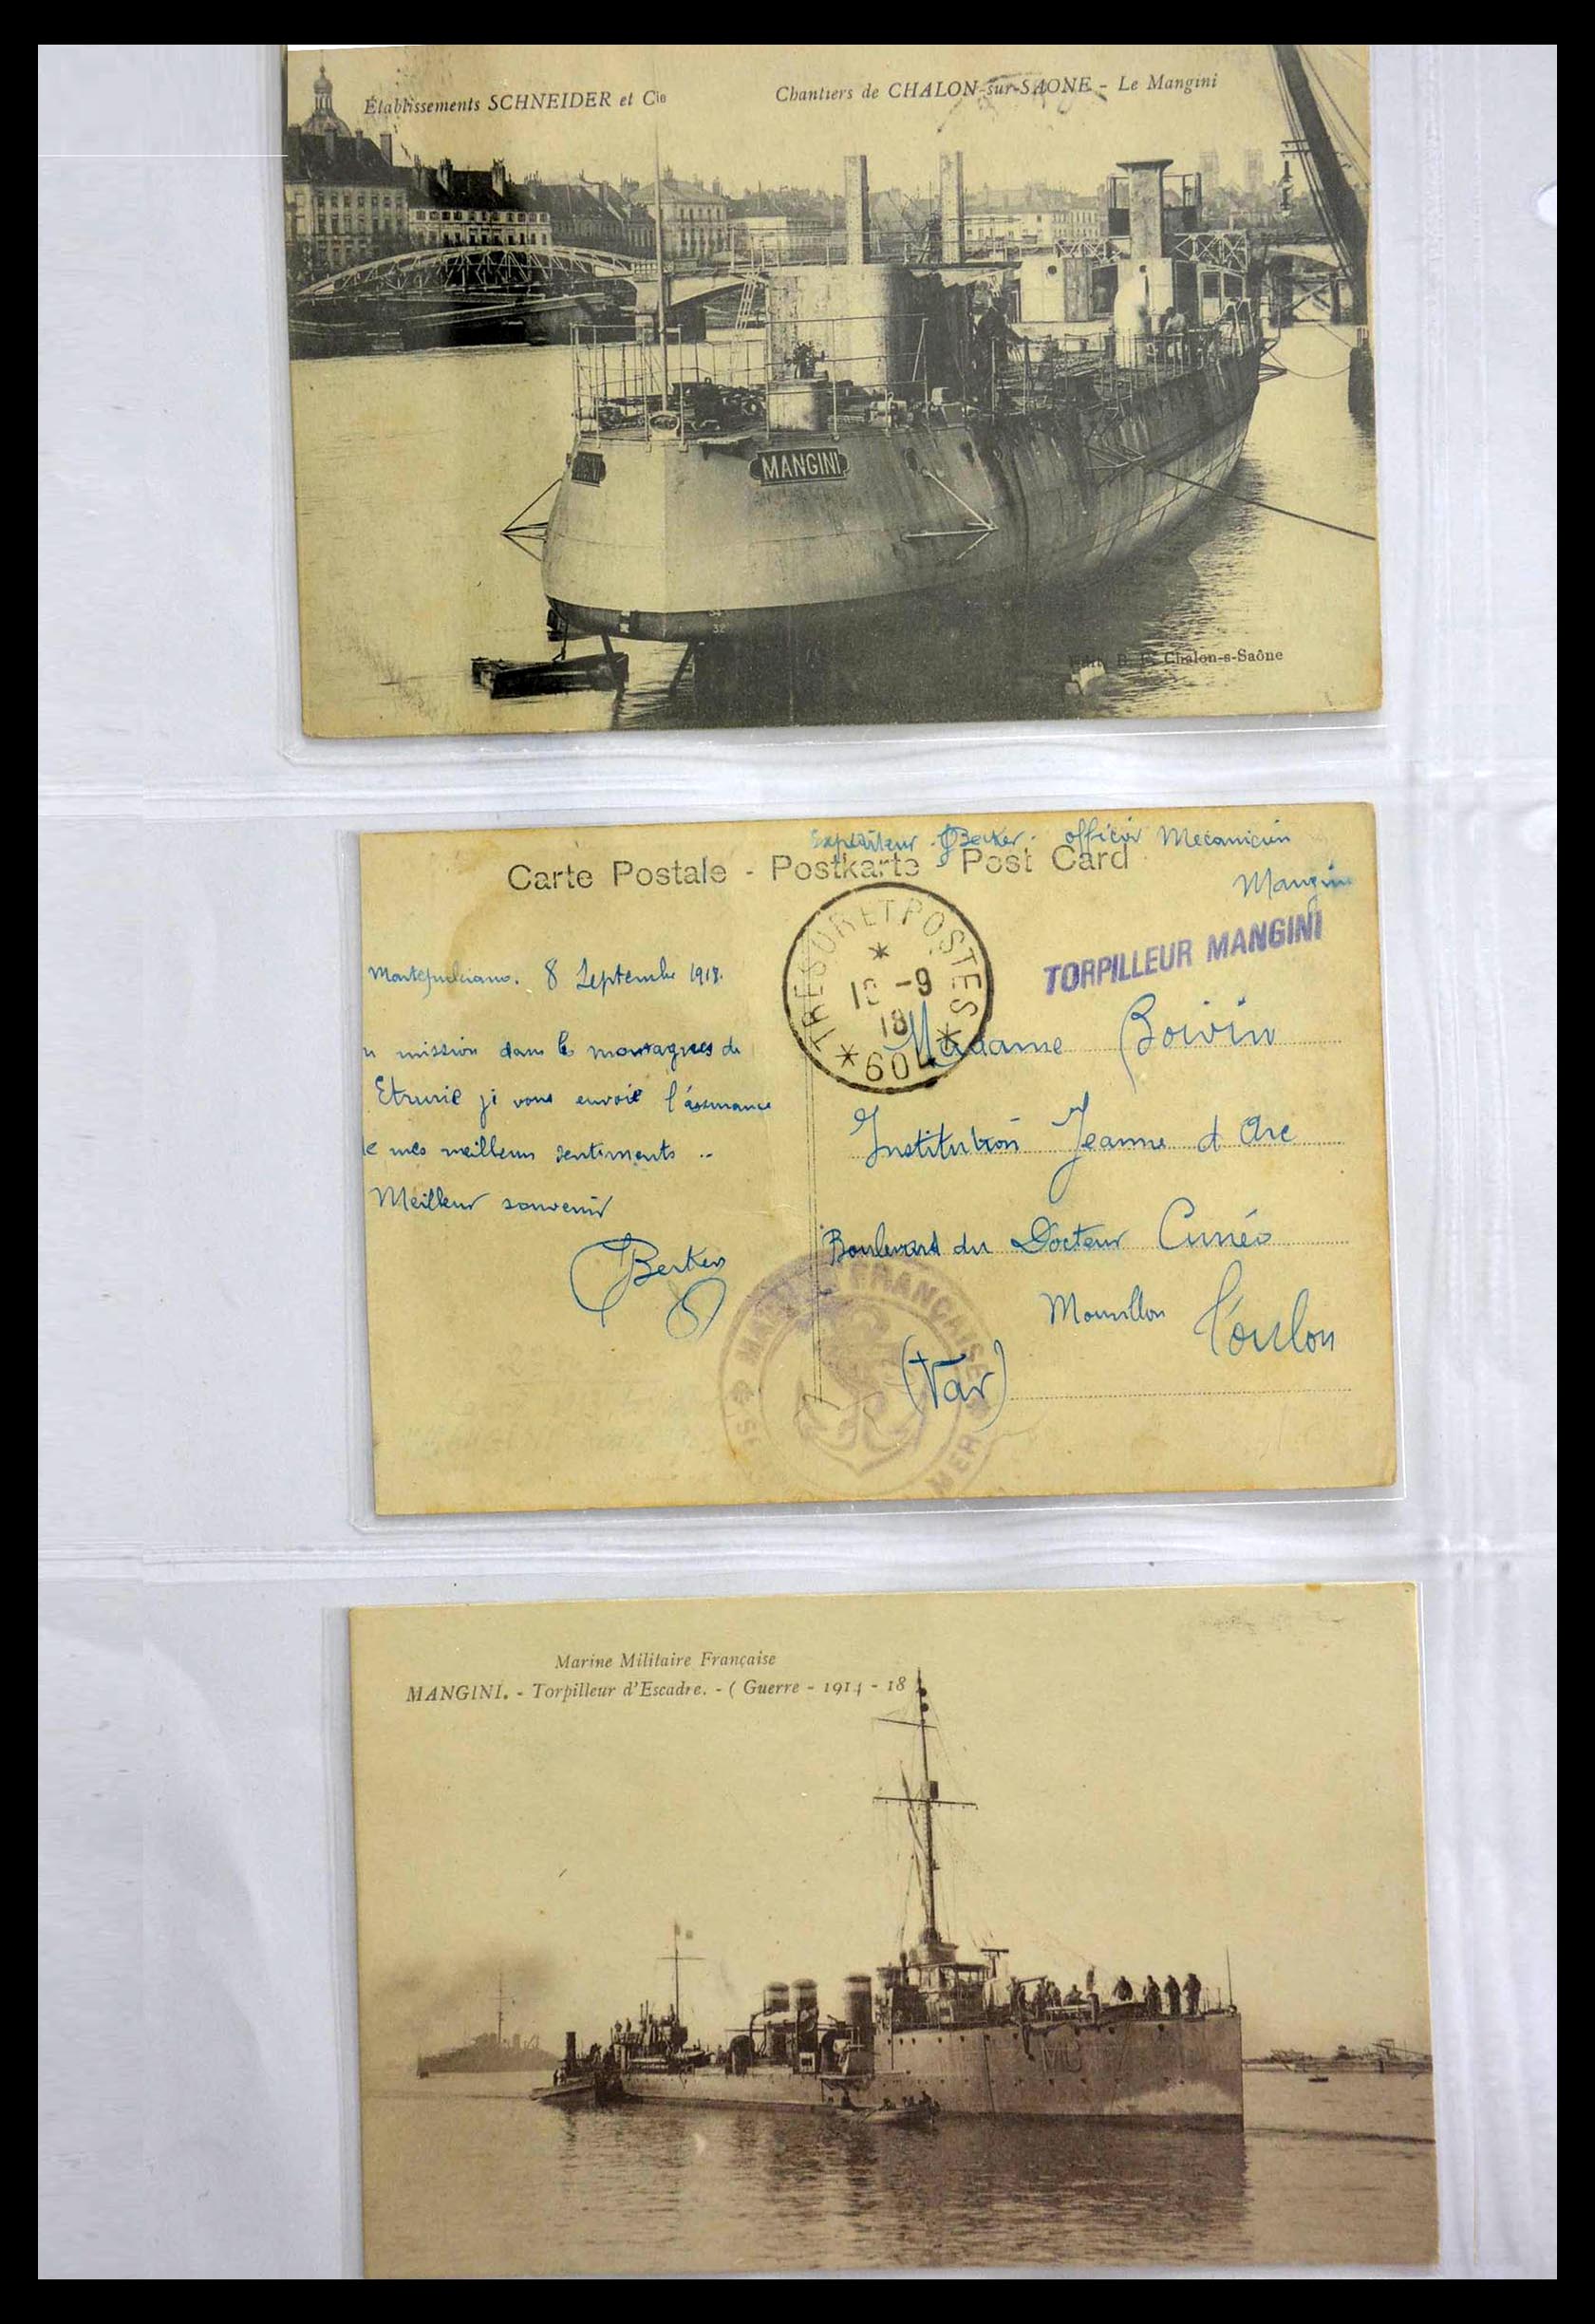 Établissements SCHNEIDER et Cie
Chantiers de CHALON-sur-SAONE - Le Mangini
MANGINI
32
Chalon-s-Saône
Expéditeur Berker. officier Mecanicien
Mangini
Carte Postale - Postkarte - Post Card
TRESOR ET POSTES
-9
18
* 601 *
TORPILLEUR MANGINI
Montepulciano. 8 Septembre 1918.
mission dans les montagnes de
Etrurie je vous envoie l'assurance
mes meilleurs sentiments ..
Meilleur souvenir
Berker
Madame Boivin
Institution Jeanne d Arc
Boulevard du Docteur Cunéo
Mourillon Toulon
(Var)
FRANÇAISE
MER
Marine Militaire Française
MANGINI. - Torpilleur d'Escadre. - ( Guerre - 1914 - 18